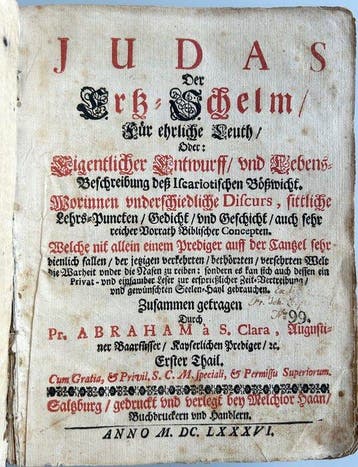 JUDAS
Der
Ertz-Schelm/
Für ehrliche Leuth/
Oder:
Eigentlicher Entwurff/ vnd Lebens-
Beschreibung deß Iscariotischen Bößwicht.
Worinnen vnderschiedliche Discurs, sittliche
Lehrs-Puncten/ Gedicht/ vnd Geschicht/ auch sehr
reicher Vorrath Biblischer Concepten.
Welche nit allein einem Prediger auff der Cantzel sehr
dienlich fallen/ der jetzigen verkehrten/ bethörrten/ versehrten Welt
die Warheit vnder die Nasen zu reiben: sondern es kan sich auch dessen ein
Privat- vnd einsamber Leser zur ersprießlicher Zeit-Vertreibung/
vnd gewünschten Seelen-Hayl gebrauchen.
Zusammen getragen
Durch
Pr. ABRAHAM à S. Clara, Augusti-
ner Baarfüsser/ Kayserlichen Prediger/ ꝛc.
99.
Erster Thail.
Cum Gratia, & Privil. S. C. M. speciali, & Permissu Superiorum.
Saltzburg/ gedruckt vnd verlegt bey Melchior Haan/
Buchdruckern vnd Handlern.
ANNO M. DC. LXXXVI.